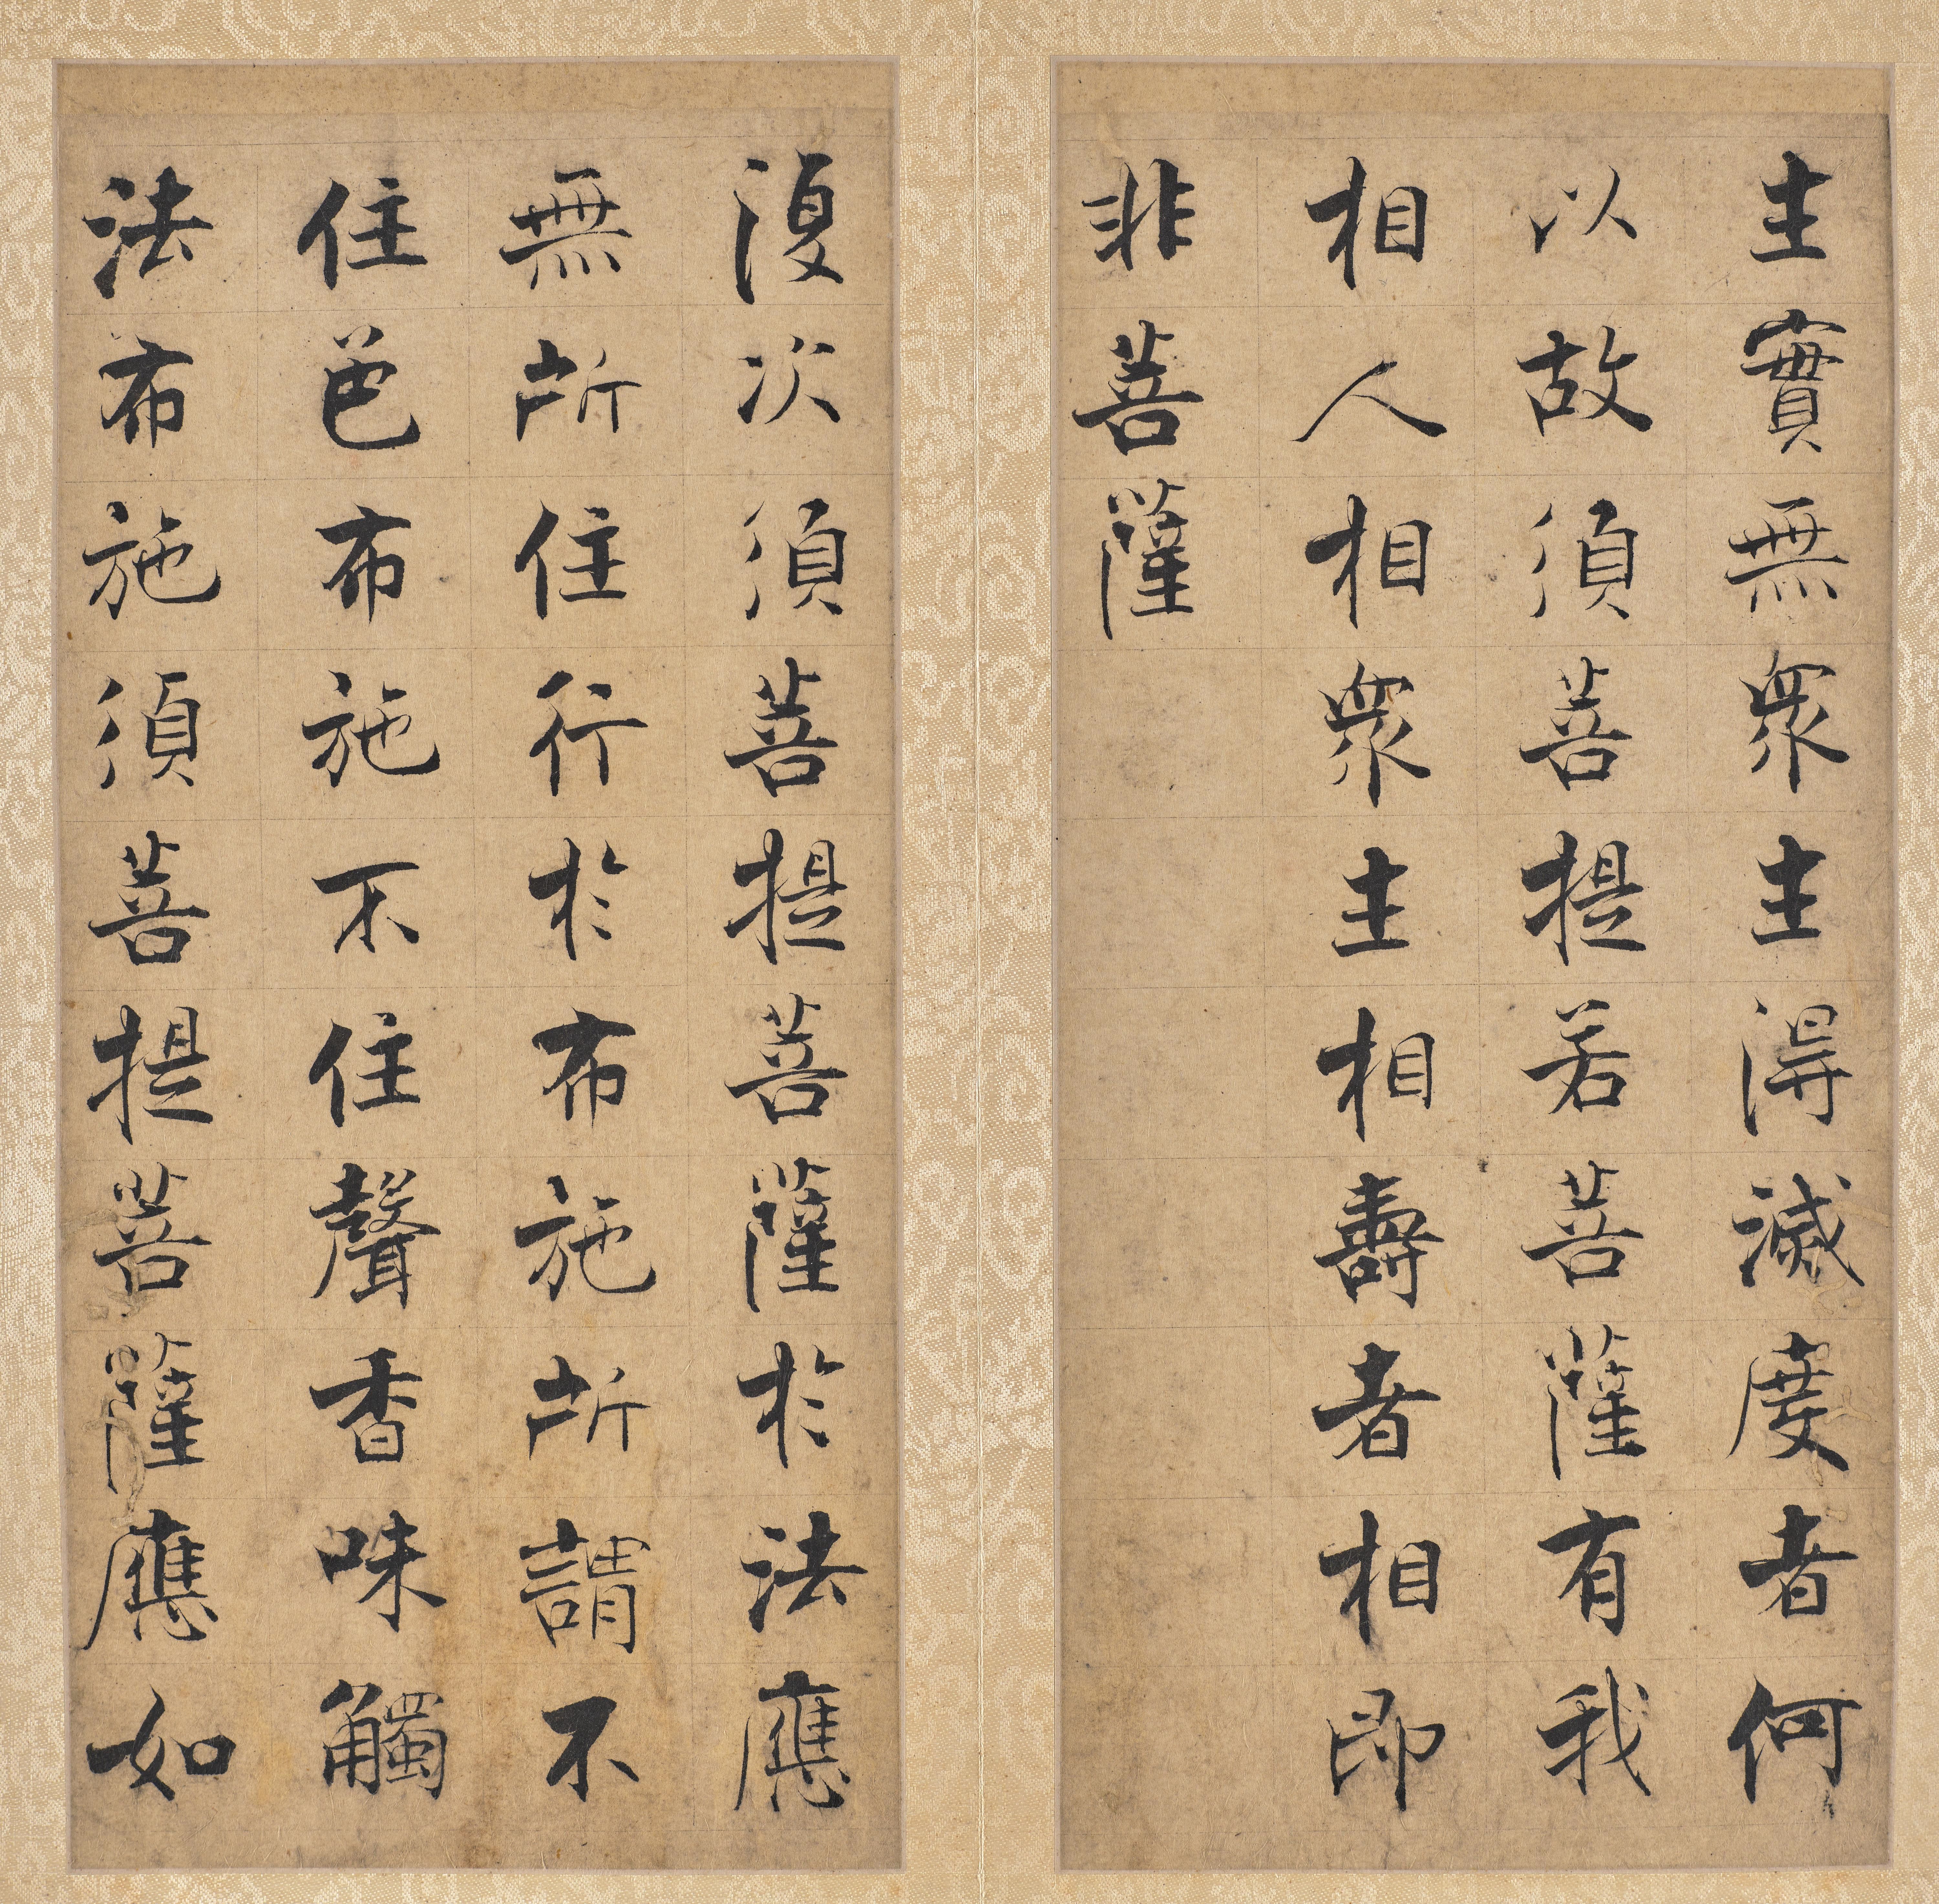 生實無衆生得滅度者何
以故須菩提若菩薩有我
相人相衆生相壽者相即
非菩薩
復次須菩提菩薩於法應
無所住行於布施所謂不
住色布施不住聲香味觸
法布施須菩提菩薩應如